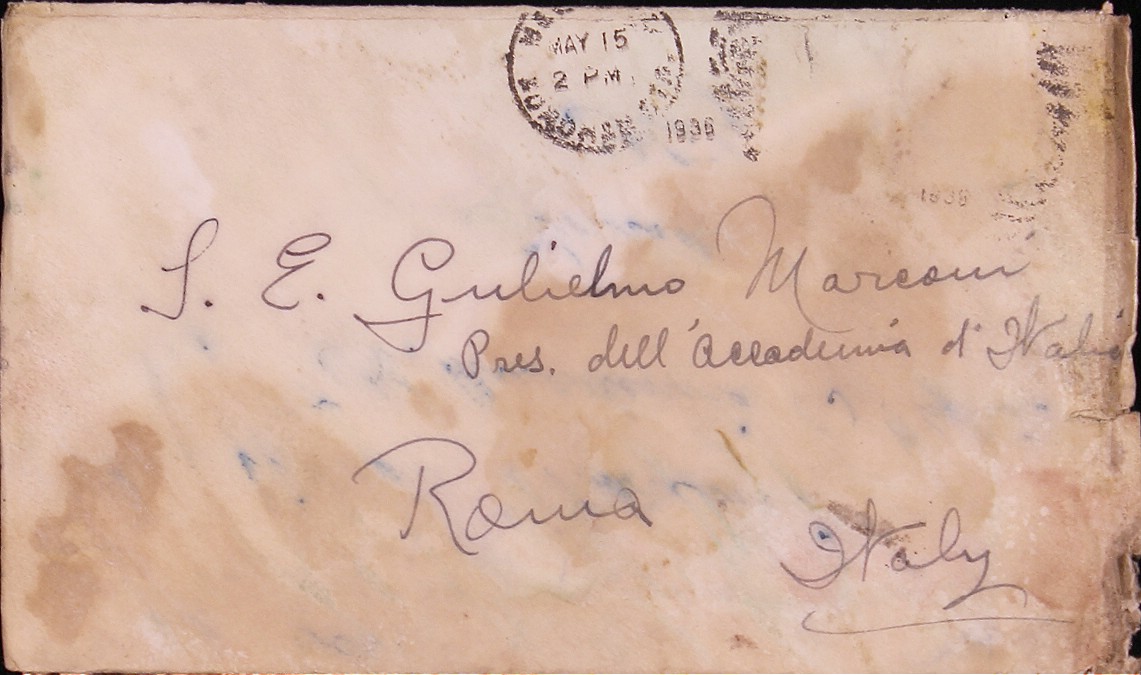 MAY 15
2 PM
1936
S. E. Gulielmo Marconi
Pres. dell'Accademia d'Italia
Roma
Italy